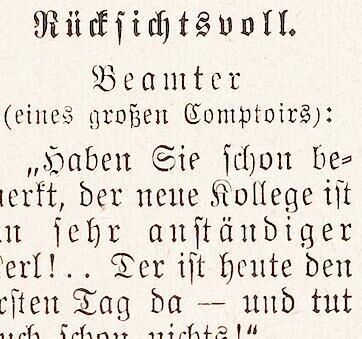 Rücksichtsvoll.
Beamter
(eines großen Comptoirs):
„Haben Sie schon be-
merkt, der neue Kollege ist
ein sehr anständiger
Kerl!.. Der ist heute den
ersten Tag da — und tut
auch schon nichts!“